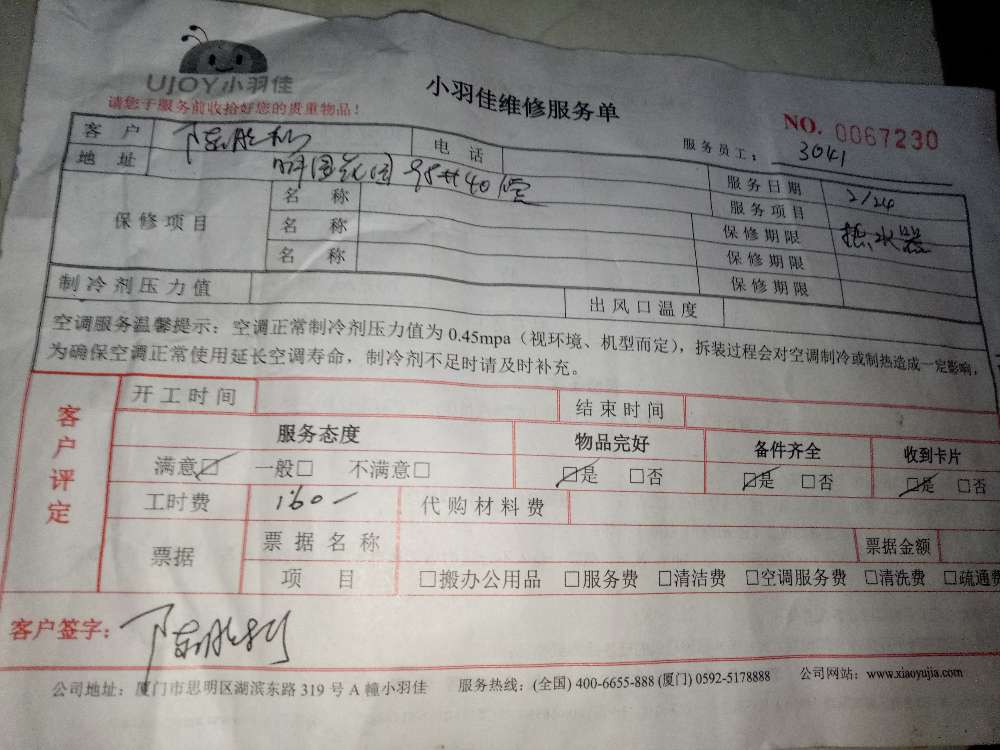 UJOY小羽佳
请您于服务前收拾好您的贵重物品！
小羽佳维修服务单
NO. 0067230
服务员工： 3041
客 户 电 话 服务日期 2/24
地 址 服务项目 热水器
保修项目 名 称 保修期限
名 称 保修期限
名 称 保修期限
制冷剂压力值 出风口温度
空调服务温馨提示：空调正常制冷剂压力值为 0.45mpa（视环境、机型而定），拆装过程会对空调制冷或制热造成一定影响，
为确保空调正常使用延长空调寿命，制冷剂不足时请及时补充。
客户评定
开工时间 结束时间
服务态度 物品完好 备件齐全 收到卡片
满意☑ 一般□ 不满意□ ☑是 □否 ☑是 □否 ☑是 □否
工时费 160- 代购材料费
票据 票据名称 票据金额
项 目 □搬办公用品 □服务费 □清洁费 □空调服务费 □清洗费 □疏通费
客户签字：
公司地址：厦门市思明区湖滨东路 319 号 A 幢小羽佳 服务热线：(全国) 400-6655-888 (厦门) 0592-5178888 公司网站：www.xiaoyujia.com